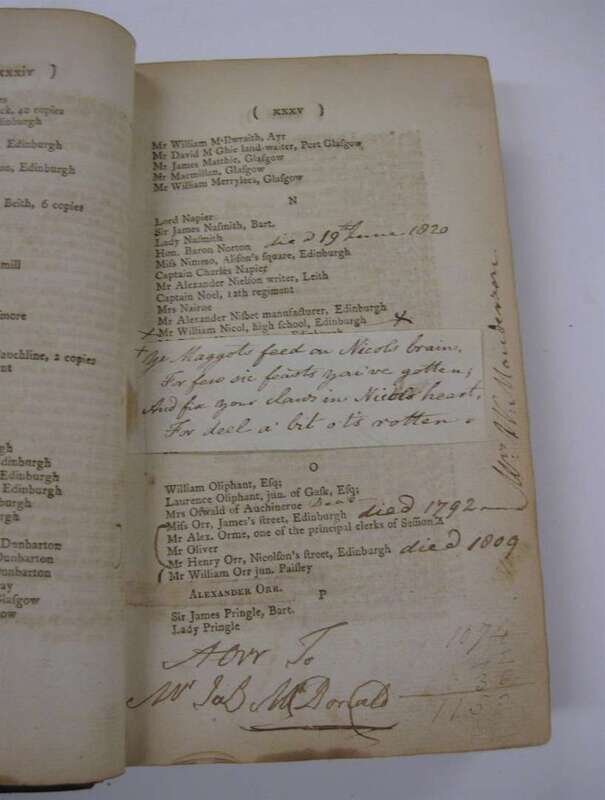 xxxiv ]
ck, 40 copies
Edinburgh
, Edinburgh
Edinburgh
Beith, 6 copies
mill
more
auchline, 2 copies
Edinburgh
Edinburgh
Edinburgh
Edinburgh
Dunbarton
Dunbarton
Dunbarton
Glasgow
( xxxv )
Mr William M'Ilwraith, Ayr
Mr David M'Ghie land-waiter, Port Glasgow
Mr James Matthie, Glasgow
Mr Macmillan, Glasgow
Mr William Merrylees, Glasgow
N
Lord Napier
Sir James Nasmith, Bart.
Lady Nasmith
Hon. Baron Norton died 19th June 1820
Miss Nimmo, Alison's square, Edinburgh
Captain Charles Napier
Mr Alexander Nielson writer, Leith
Captain Noel, 12th regiment
Mrs Nairne
Mr Alexander Nisbet manufacturer, Edinburgh
x Mr William Nicol, high school, Edinburgh x
+ Ye Maggots feed on Nicols brain,
For few sic feasts you've gotten;
And fix your claws in Nicols heart,
For deel a bit o'ts rotten.
O
William Oliphant, Esq;
Laurence Oliphant, jun. of Gask, Esq;
Mrs Oswald of Auchincruе Dead
Miss Orr, James's street, Edinburgh died 1792
Mr Alex. Orme, one of the principal clerks of Session
Mr Oliver
Mr Henry Orr, Nicolson's street, Edinburgh died 1809
Mr William Orr jun. Paisley
ALEXANDER ORR.
P
Sir James Pringle, Bart.
Lady Pringle
A Orr To
Mr Jas McDonald